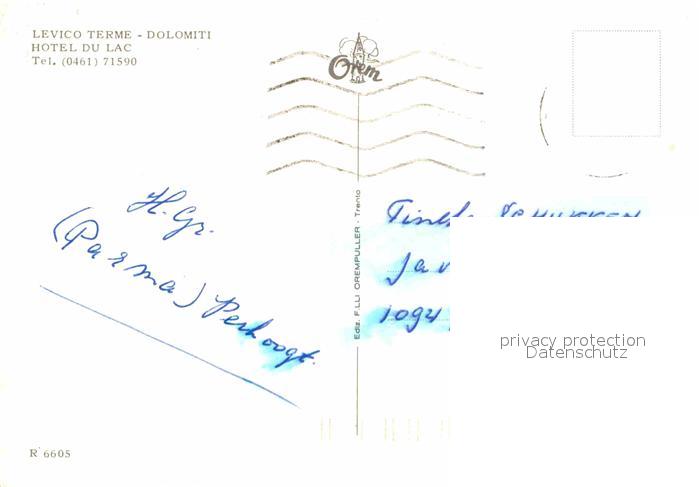 LEVICO TERME - DOLOMITI
HOTEL DU LAC
Tel. (0461) 71590
Orem
H. Gr.
(Parma)
Ediz. F.LLI OREMPULLER - Trento
1094
privacy protection
Datenschutz
R 6605